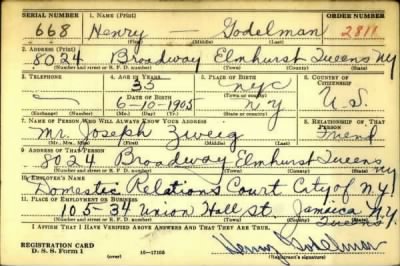 SERIAL NUMBER 1. NAME (Print) ORDER NUMBER
668 Henry — Godelman 2811
(First) (Middle) (Last)
2. ADDRESS (Print)
8024 Broadway Elmhurst Queens NY
(Number and street or R. F. D. number) (Town) (County) (State)
3. TELEPHONE 4. AGE IN YEARS 5. PLACE OF BIRTH 6. COUNTRY OF CITIZENSHIP
35 NYC
DATE OF BIRTH (Town or county)
6-10-1905 N.Y. U.S.
(Exchange) (Number) (Mo.) (Day) (Yr.) (State or country)
7. NAME OF PERSON WHO WILL ALWAYS KNOW YOUR ADDRESS 8. RELATIONSHIP OF THAT PERSON
Mr. Joseph Zweig friend
(Mr., Mrs., Miss) (First) (Middle) (Last)
9. ADDRESS OF THAT PERSON
8024 Broadway Elmhurst Queens NY
(Number and street or R. F. D. number) (Town) (County) (State)
10. EMPLOYER'S NAME
Domestic Relations Court City of N.Y.
11. PLACE OF EMPLOYMENT OR BUSINESS
105-34 Union Hall St. Jamaica N.Y.
Queens
(Number and street or R. F. D. number) (Town) (County) (State)
I AFFIRM THAT I HAVE VERIFIED ABOVE ANSWERS AND THAT THEY ARE TRUE.
REGISTRATION CARD
D. S. S. Form 1 (over) 16—17105
Henry Godelman
(Registrant's signature)